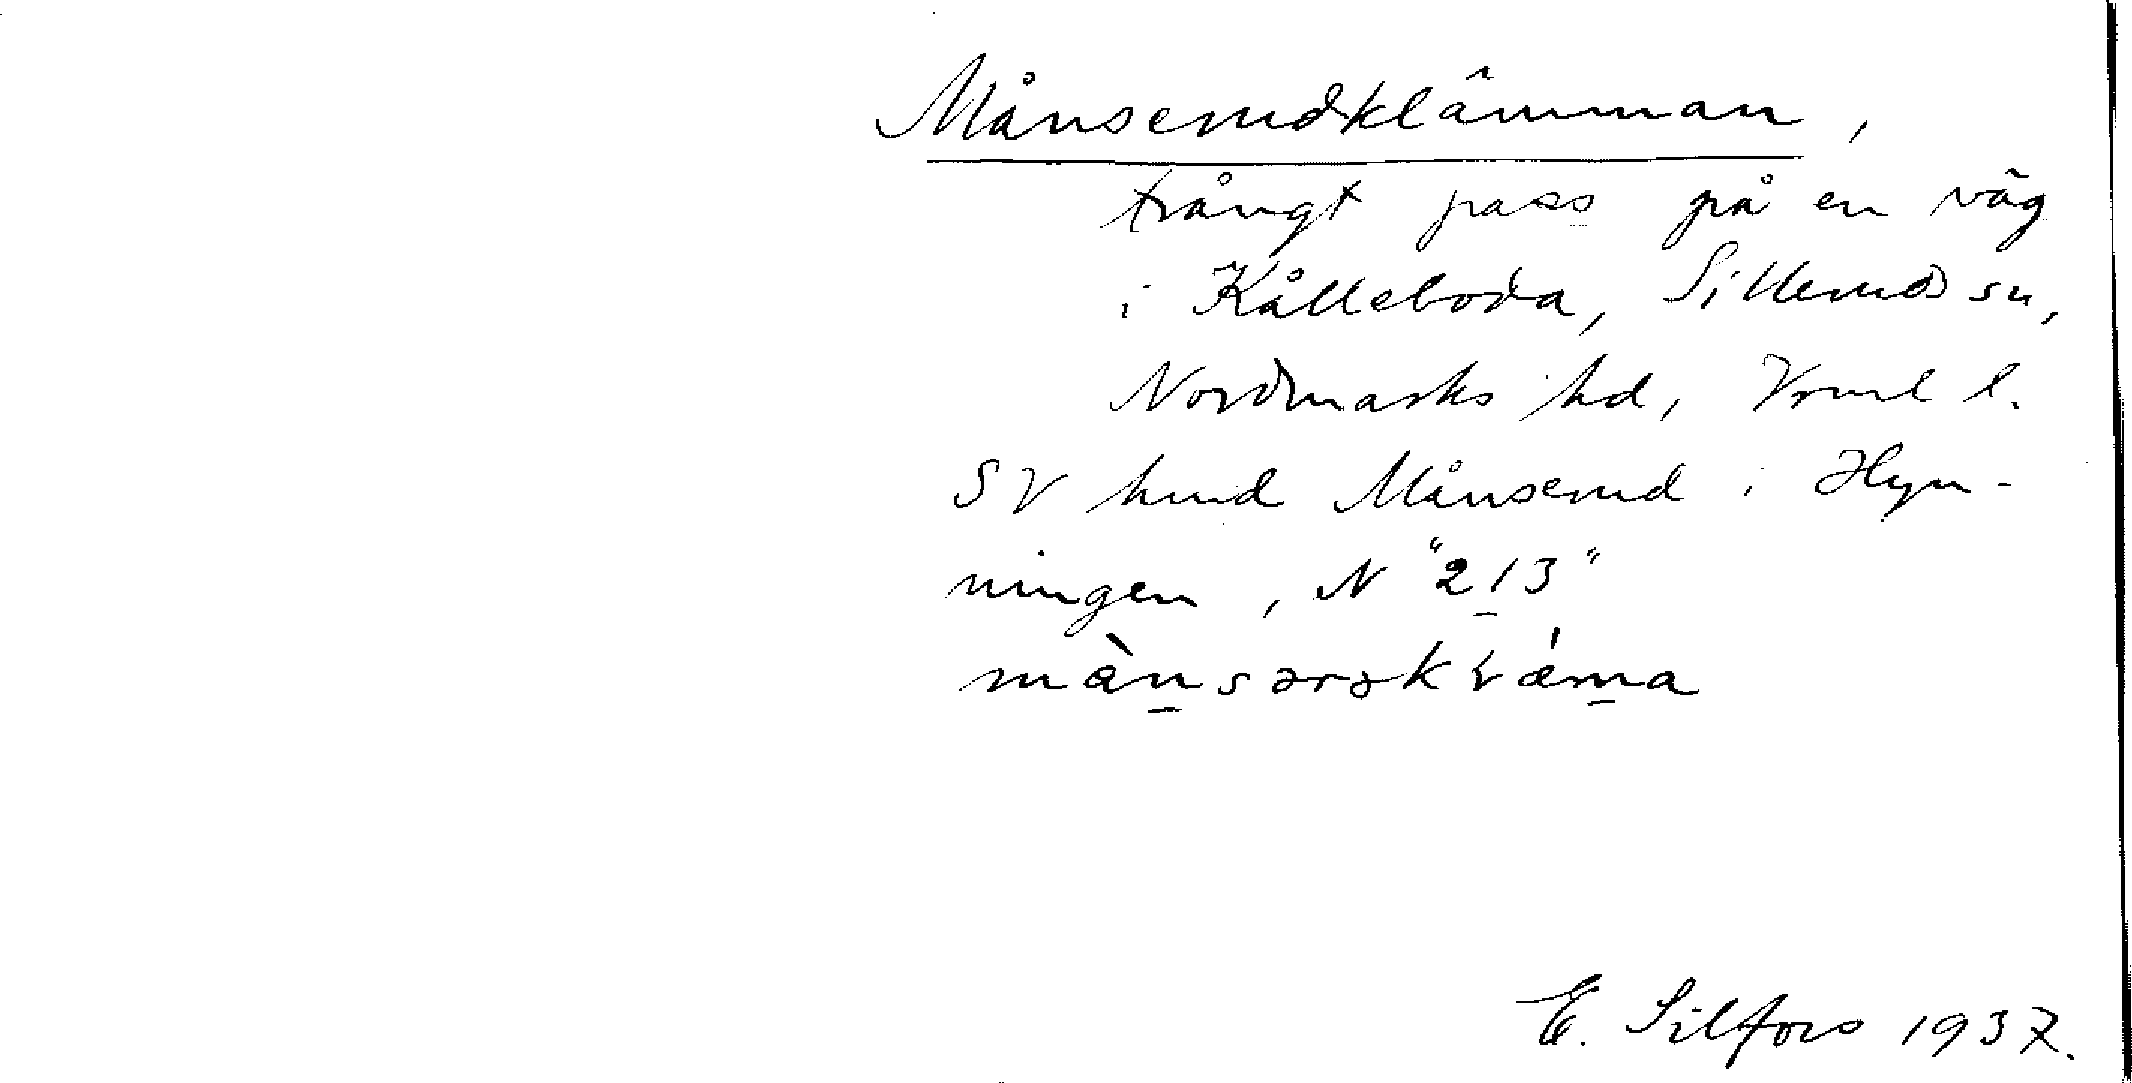 Månserudklämman,
trångt pass på en väg
i Kålleboda, Sillerud sn,
Nordmarks hd, Vrml l.
SV hmd Månserud i Hyn-
ningen, N "213"
E. Silfors 1937.